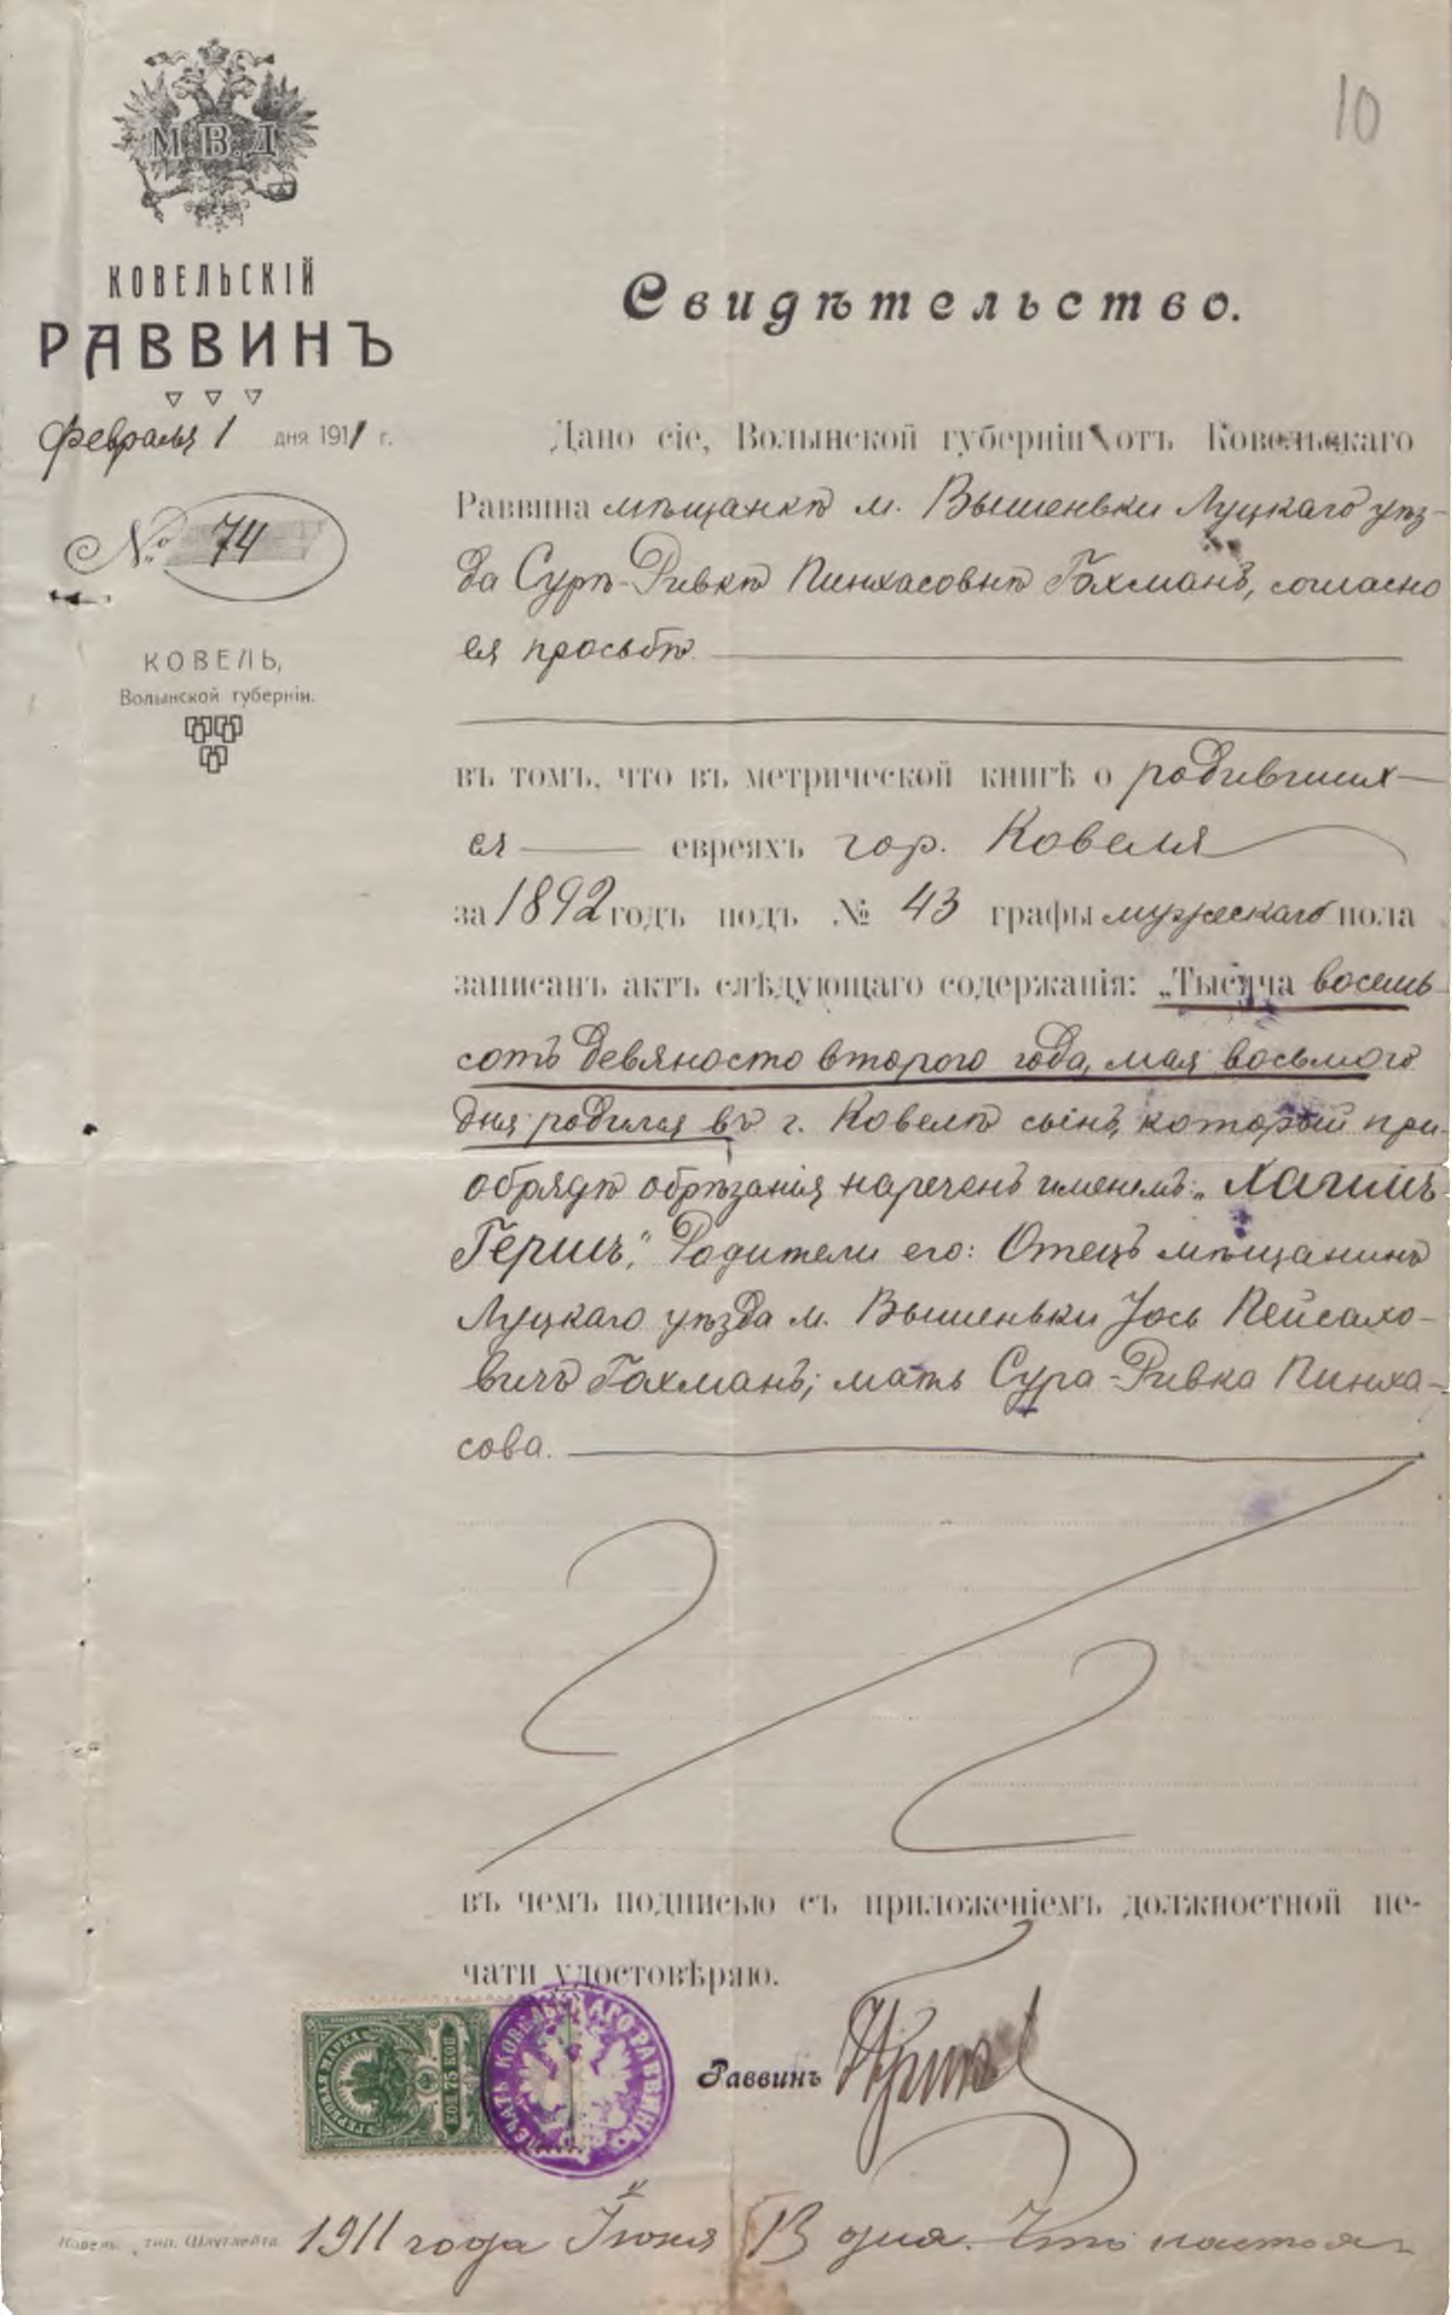 10
М. В. Д
КОВЕЛЬСКІЙ
РАВВИНЪ
Февраля 1 дня 1911 г.
№ 74
КОВЕЛЬ,
Волынской губерніи.
Свидѣтельство.
Дано сіе, Волынской губерніи отъ Ковельскаго
Раввина мѣщанкѣ м. Вышеньки Луцкаго уѣз-
да Сурѣ-Ривкѣ Пинхасовнѣ Гохманъ, согласно
ея просьбѣ
въ томъ, что въ метрической книгѣ о родивших-
ся евреяхъ гор. Ковеля
за 1892 годъ подъ № 43 графы мужескаго пола
записанъ актъ слѣдующаго содержанія: „Тысяча восемь-
сотъ девяносто второго года, мая восьмого
дня родился въ г. Ковелѣ сынъ, который при
обрядѣ обрѣзанія нареченъ именемъ: „Хаимъ-
Гершъ“. Родители его: Отецъ мѣщанинъ
Луцкаго уѣзда м. Вышеньки Іось Пейсахо-
вичъ Гохманъ; мать Сура-Ривка Пинха-
сова.
въ чемъ подписью съ приложеніемъ должностной пе-
чати удостовѣряю.
ГЕРБОВАЯ МАРКА
75 КОП
ПЕЧАТЬ КОВЕЛЬСКАГО РАВВИНА
Раввинъ
Ковель, тип. Шругляйта
1911 года Іюня 13 дня. Что настоя-